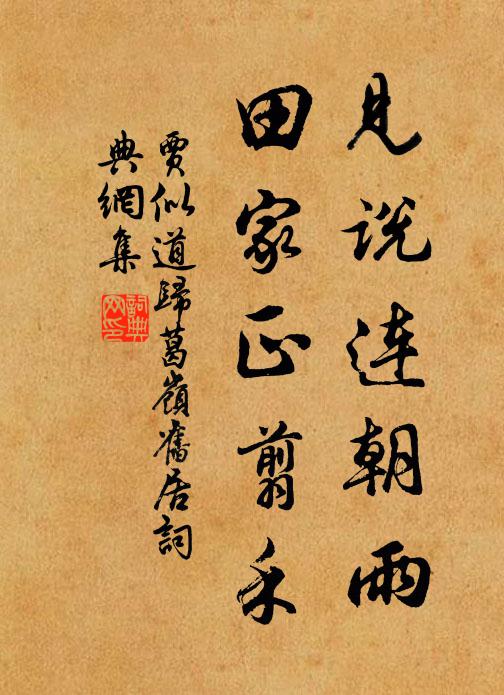 見說連朝雨
田家正翦禾
賈似道歸葛嶺舊居詞
典網集
詞典網印